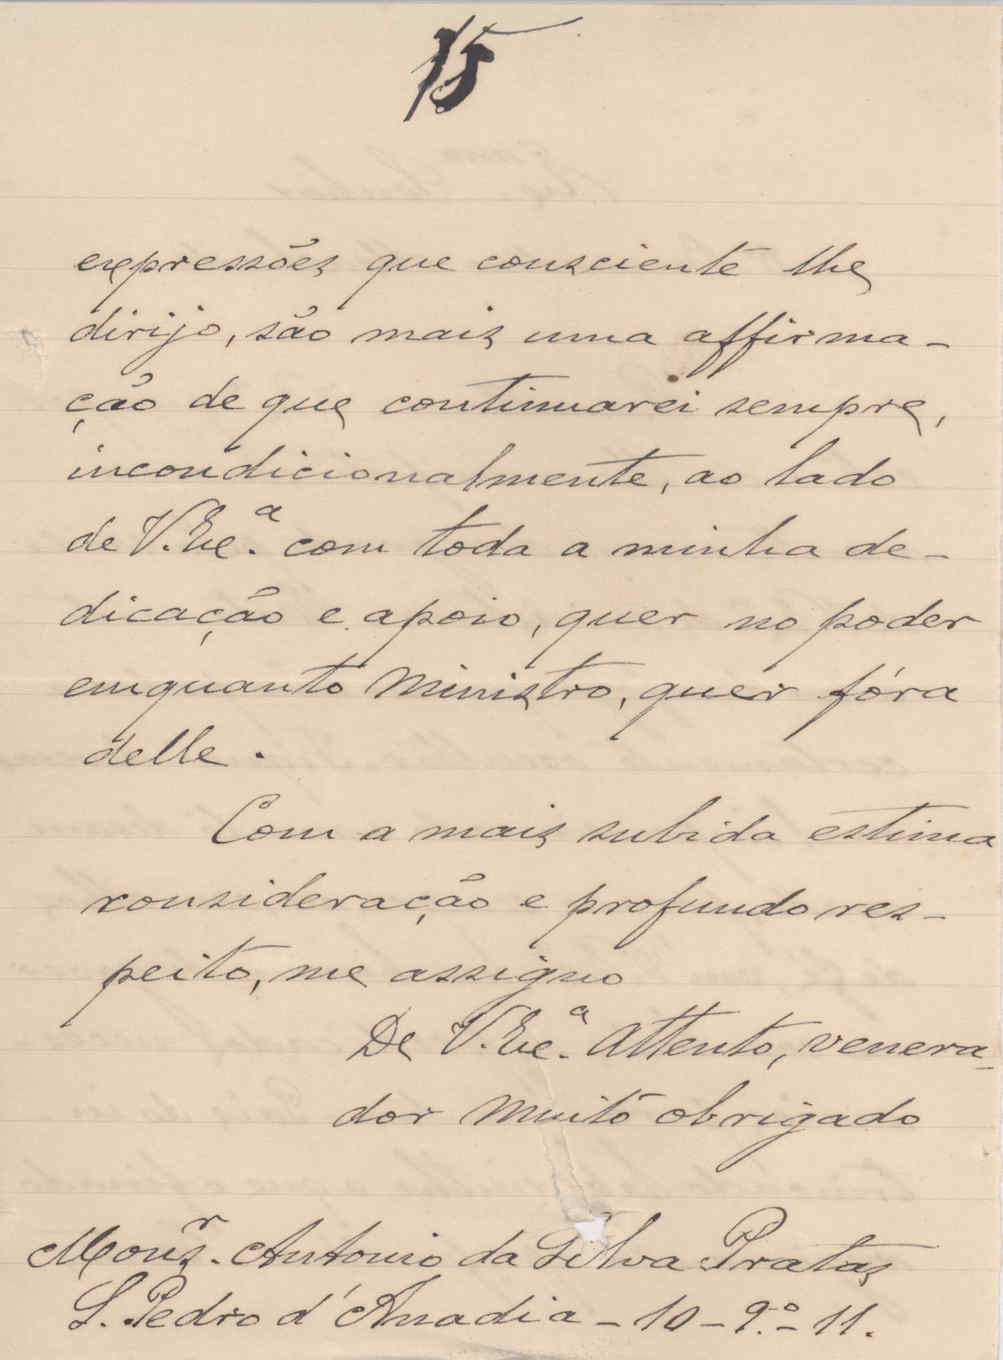 15
expressões que consciente lhe
dirijo, são mais uma affirma-
ção de que continuarei sempre,
incondicionalmente, ao lado
de V. Exc.ª com toda a minha de-
dicação e apoio, quer no poder
emquanto Ministro, quer fóra
delle.
Com a mais subida estima
consideração e profundo res-
peito, me assigno
De V. Exc.ª Attento, venera-
dor Muito obrigado
Monsr. Antonio da Silva Pratas
S. Pedro d'Anadia - 10 - 9.º - 11.